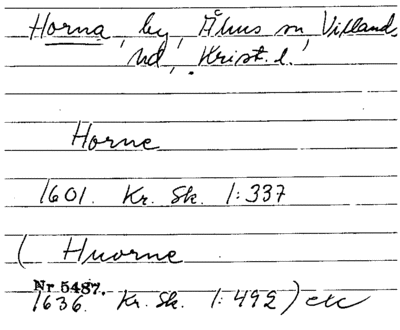 Horna, by, Åhus sn, Villands
hd, Krist. l.
Horne
1601. Kr. Sk. 1:337
( Huorne
Nr 5487.
1636. Kr. Sk. 1:492) etc